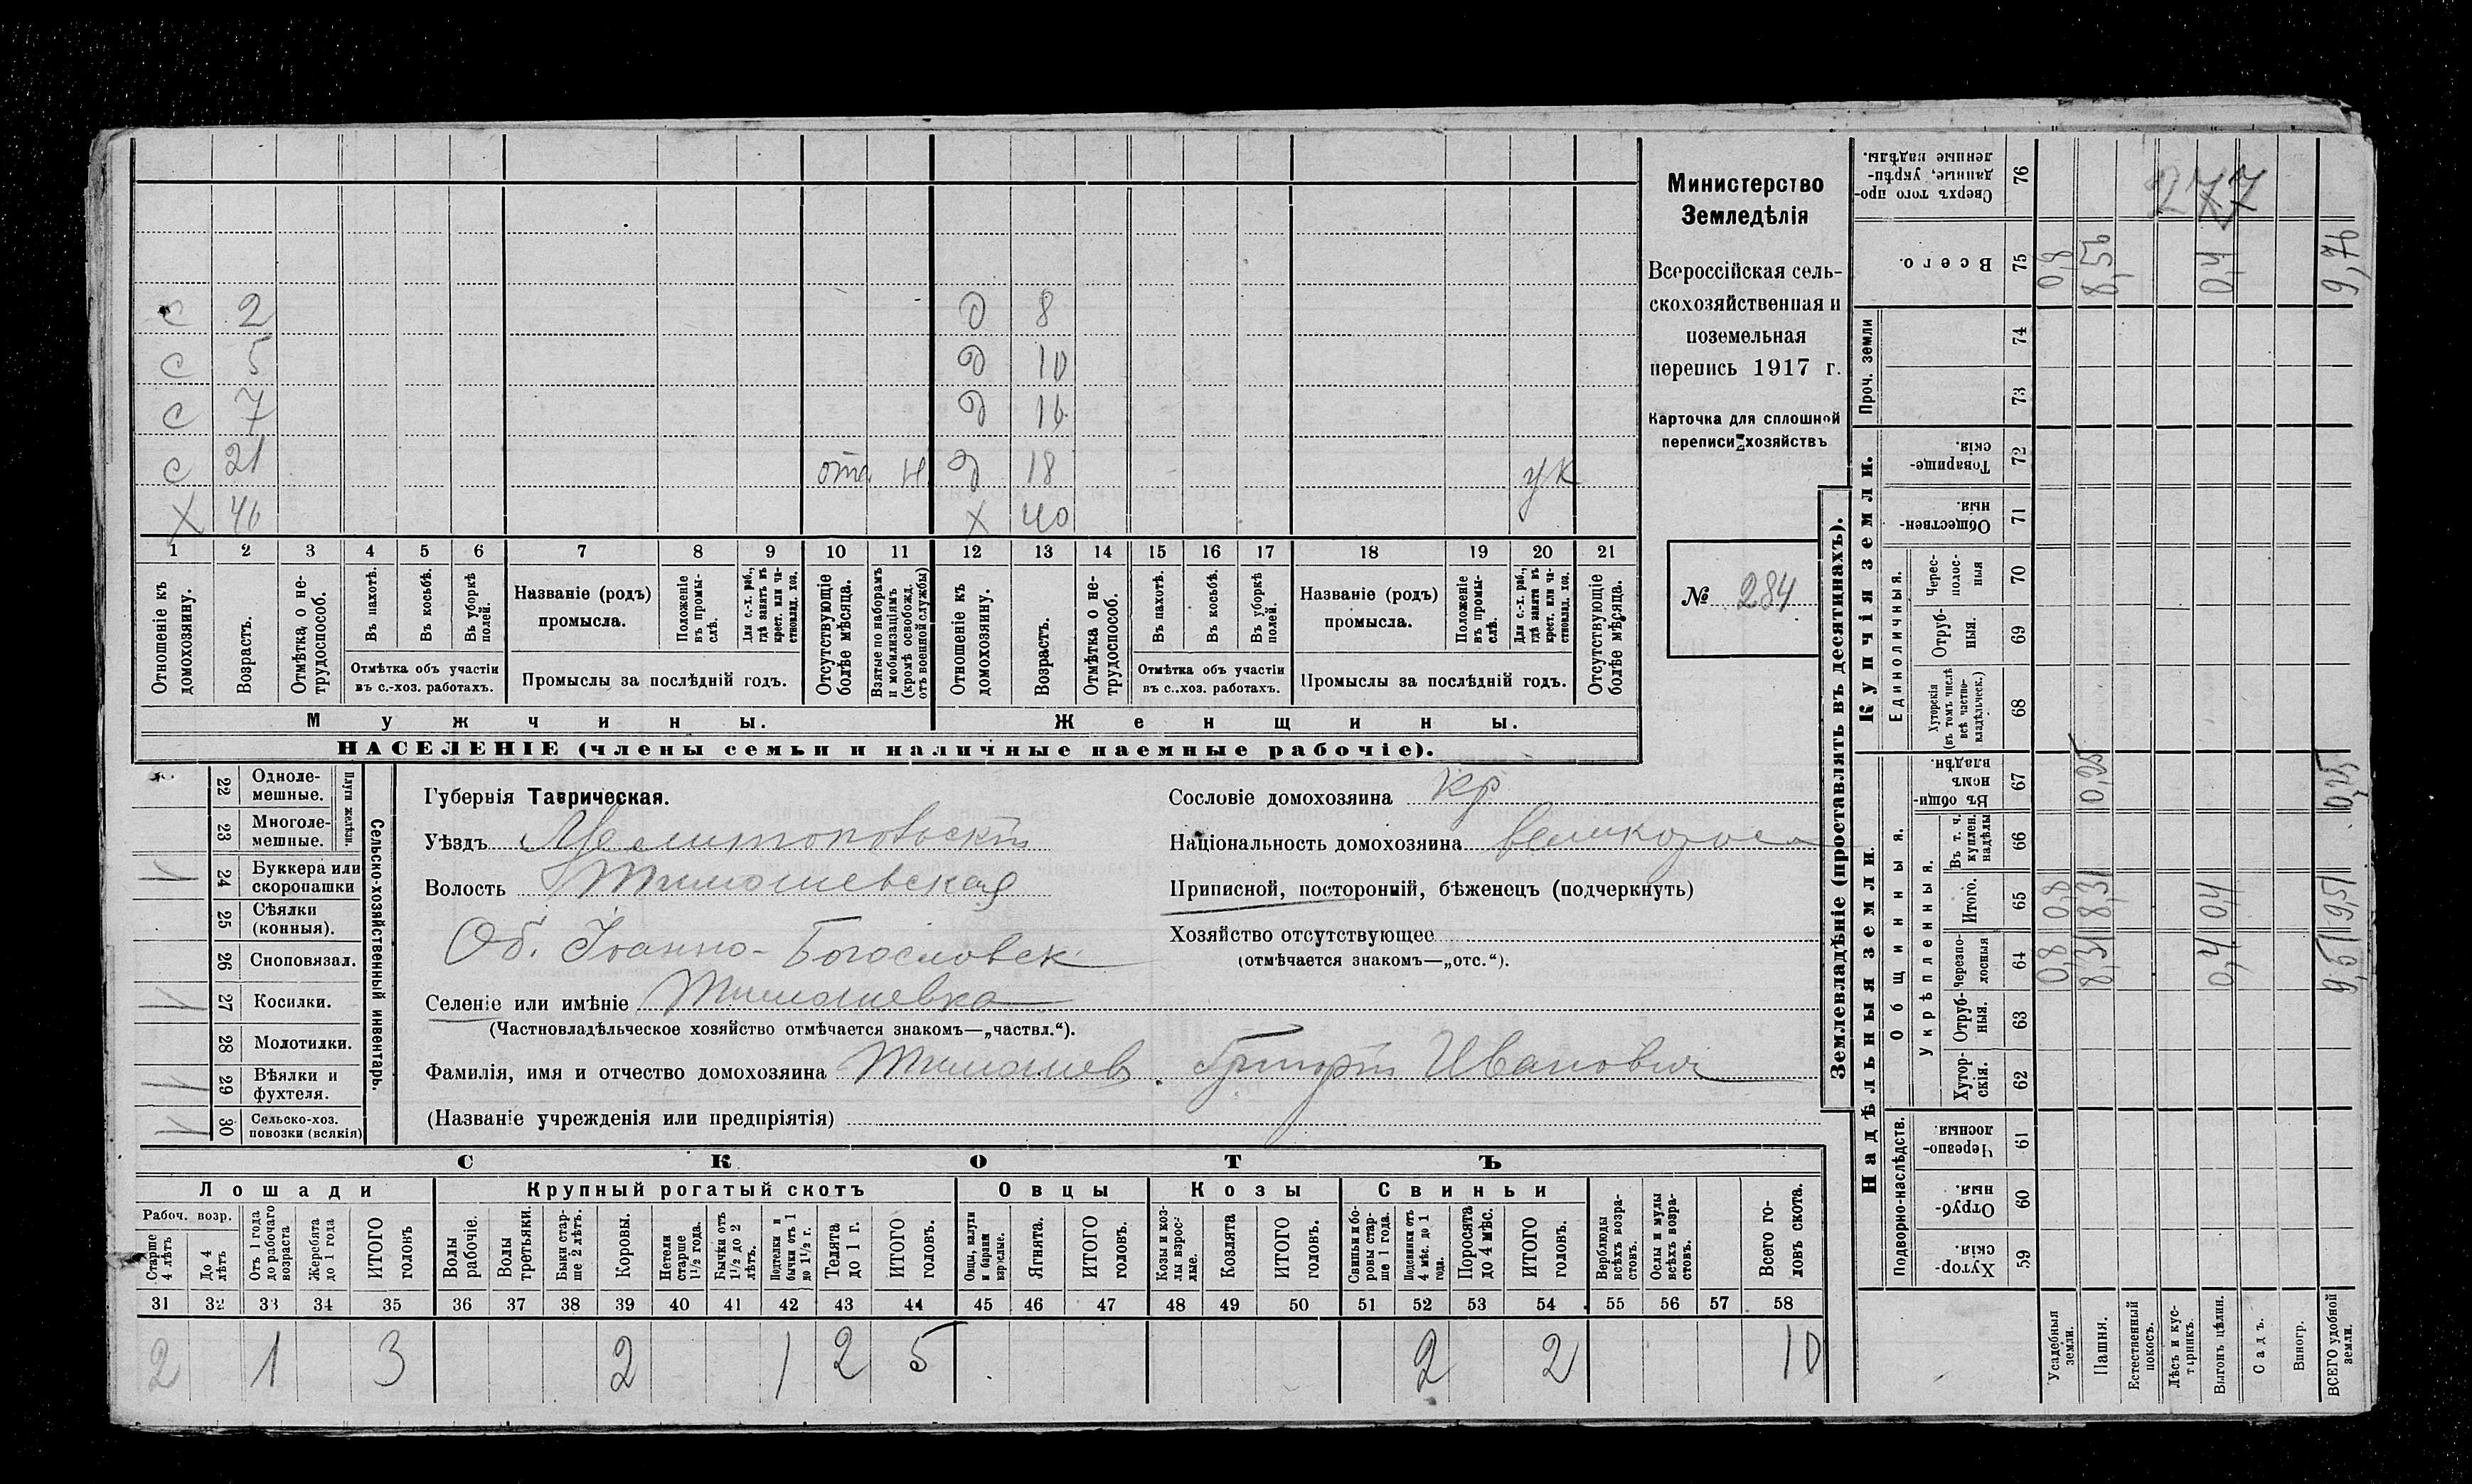 с 2 д 8
с 5 д 10
с 7 д 16
с 21 отс. н. д 18 ук
х 46 х 40
1 2 3 4 5 6 7 8 9 10 11 12 13 14 15 16 17 18 19 20 21
Отношеніе къ домохозяину.
Возрастъ.
Отмѣтка о не-трудоспособ.
Въ пахотѣ.
Въ косьбѣ.
Въ уборкѣ полей.
Отмѣтка объ участіи
въ с.-хоз. работахъ.
Названіе (родъ)
промысла.
Положеніе въ промы-слѣ.
Для с.-х. раб., гдѣ занятъ въ крест. или ча-стновлад. хоз.
Промыслы за послѣдній годъ.
Отсутствующіе болѣе мѣсяца.
Взятые по наборамъ и мобилизаціямъ (кромѣ освобожд. отъ военной службы)
Отношеніе къ домохозяину.
Возрастъ.
Отмѣтка о не-трудоспособ.
Въ пахотѣ.
Въ косьбѣ.
Въ уборкѣ полей.
Отмѣтка объ участіи
въ с..хоз. работахъ.
Названіе (родъ)
промысла.
Положеніе въ промы-слѣ.
Для с.-х. раб., гдѣ занята въ крест. или ча-стновлад. хоз.
Промыслы за послѣдній годъ.
Отсутствующіе болѣе мѣсяца.
Мужчины. Женщины.
НАСЕЛЕНІЕ (члены семьи и наличные наемные рабочіе).
Министерство
Земледѣлія
Всероссійская сель-
скохозяйственная и
поземельная
перепись 1917 г.
Карточка для сплошной
переписи хозяйствъ
№ 284
Сельско-хозяйственный инвентарь.
Плуги желѣзн.
22 Одноле-мешные.
23 Многоле-мешные.
24 Буккера или скоропашки
25 Сѣялки (конныя).
26 Сноповязал.
27 Косилки.
28 Молотилки.
29 Вѣялки и фухтеля.
30 Сельско-хоз. повозки (всякія)
Губернія Таврическая.
Уѣздъ Мелитопольскій
Волость Тимошевская
Об. Іоанно-Богословск
Селеніе или имѣніе Тимошевка
(Частновладѣльческое хозяйство отмѣчается знакомъ—„частвл.“).
Фамилія, имя и отчество домохозяина Тимошев. Григорій Иванович
(Названіе учрежденія или предпріятія)
Сословіе домохозяина кр
Національность домохозяина великорос
Приписной, посторонній, бѣженецъ (подчеркнуть)
Хозяйство отсутствующее
(отмѣчается знакомъ—„отс.“).
СКОТЪ
Лошади Крупный рогатый скотъ Овцы Козы Свиньи
Рабоч. возр.
Старше 4 лѣтъ
До 4 лѣтъ
Отъ 1 года до рабочаго возраста
Жеребята до 1 года
ИТОГО головъ
Волы рабочіе.
Волы третьяки.
Быки стар-ше 2 лѣтъ.
Коровы.
Нетели старше 1½ года.
Бычки отъ 1½ до 2 лѣтъ.
Подтелки и бычки отъ 1 до 1½ г.
Телята до 1 г.
ИТОГО головъ.
Овцы, валухи и бараны взрослые.
Ягнята.
ИТОГО головъ.
Козы и коз-лы взрос-лые.
Козлята
ИТОГО головъ.
Свиньи и бо-ровы стар-ше 1 года.
Подсвинки отъ 4 мѣс. до 1 года.
Поросята до 4 мѣс.
ИТОГО головъ.
Верблюды всѣхъ возра-стовъ.
Ослы и мулы всѣхъ возра-стовъ.
Всего го-ловъ скота.
31 32 33 34 35 36 37 38 39 40 41 42 43 44 45 46 47 48 49 50 51 52 53 54 55 56 57 58
2 1 3 2 1 2 5 2 2 10
Землевладѣніе (проставлять въ десятинахъ).
Надѣльныя земли. Купчія земли. Проч. земли
Подворно-наслѣдств. Общинныя. Укрѣпленныя. Единоличныя.
Хутор-скія. 59
Отруб-ныя. 60
Черезпо-лосныя. 61
Хутор-скія. 62
Отруб-ныя. 63
Черезпо-лосныя 64
Итого. 65
Въ т. ч. куплен. надѣлы 66
Въ общи-номъ владѣн. 67
Хуторскія (въ томъ числѣ всѣ частно-владѣльческ.) 68
Отруб-ныя. 69
Черес-полос-ныя 70
Обществен-ныя 71
Товарище-скія. 72
73
74
Всего. 75
Сверхъ того про-данные, укрѣп-ленные надѣлы. 76
277
Усадебныя земли. 0,8 0,8 0,8
Пашня. 8,31 8,31 0,25 8,56
Естественный покосъ.
Лѣсъ и кус-тарникъ.
Выгонъ цѣлин. 0,4 0,4 0,4
Садъ.
Виногр.
ВСЕГО удобной земли. 9,51 9,51 0,25 9,76